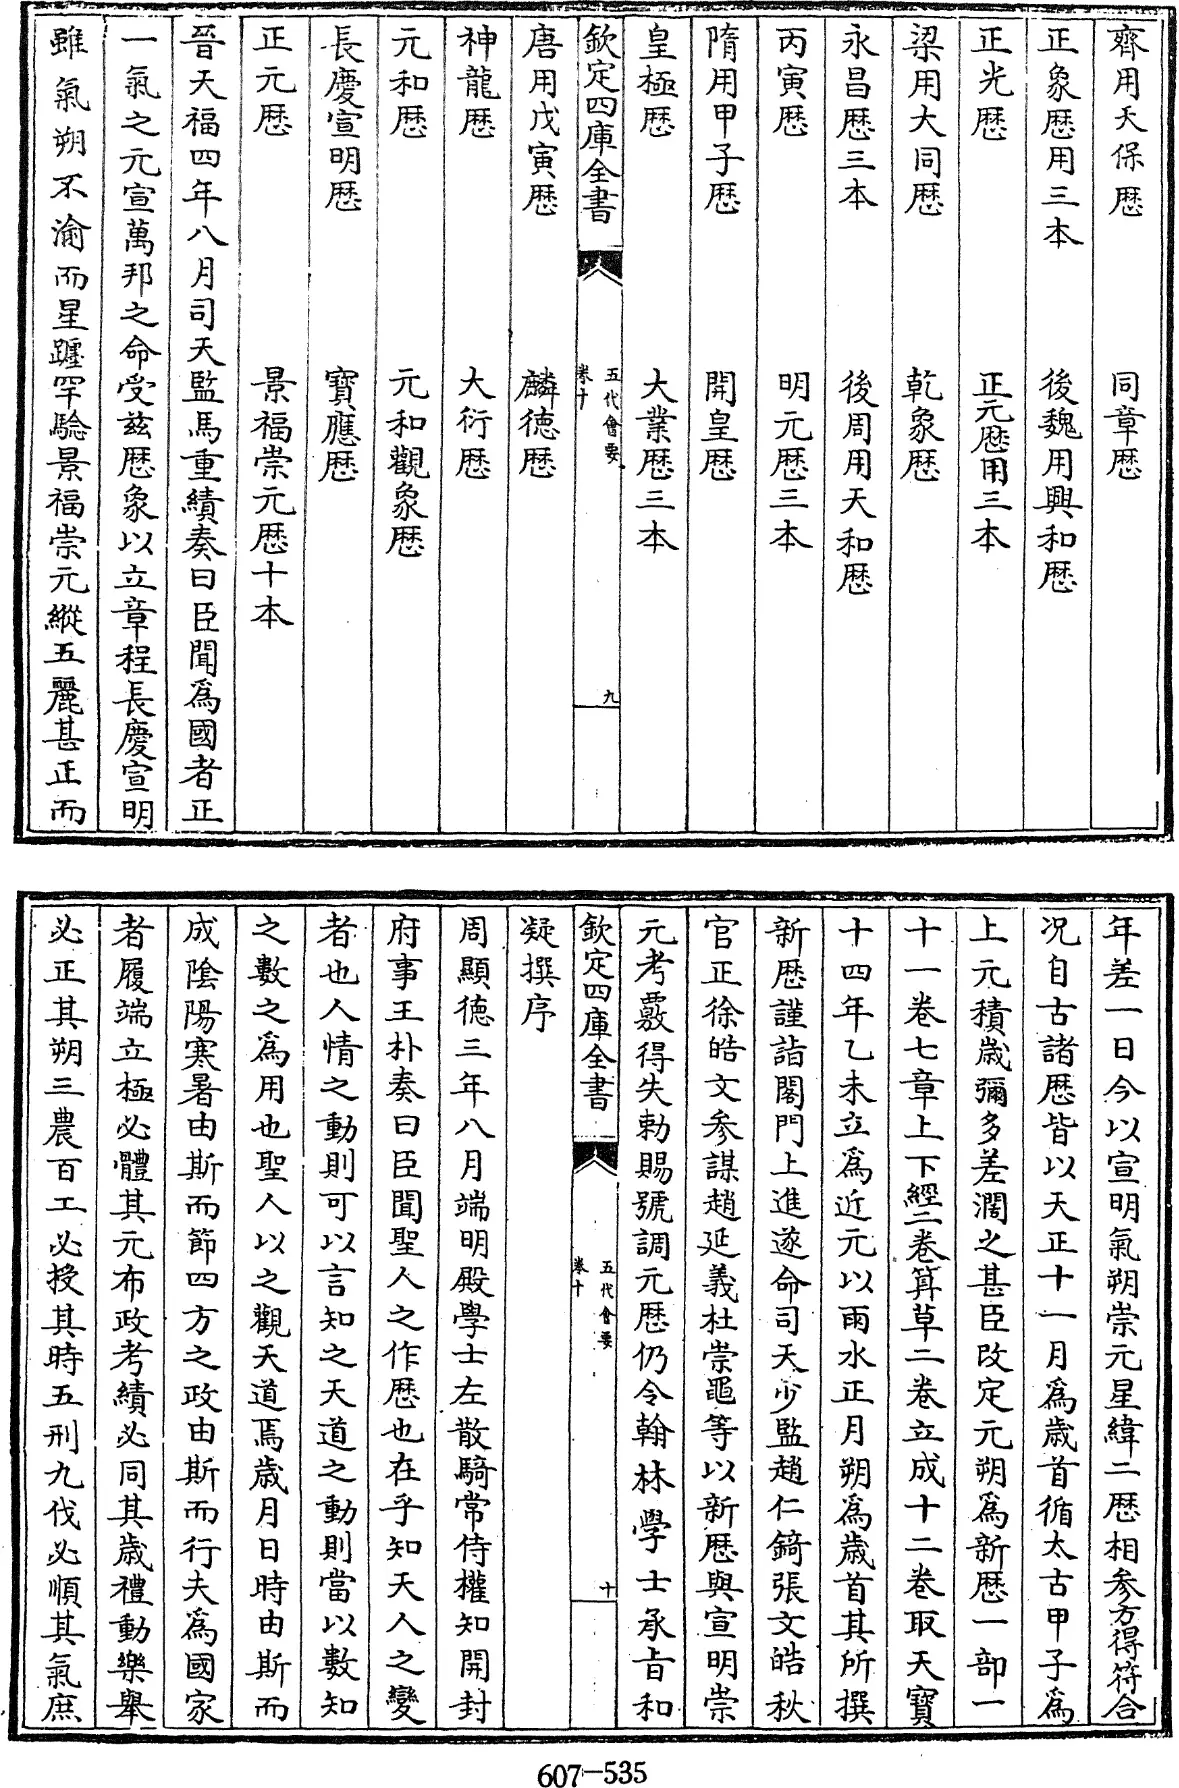 齊用天保厯　同章厯
正象厯用三本　後魏用興和厯
正光厯　正元厯用三本
梁用大同厯　乾象厯
永昌厯三本　後周用天和厯
丙寅厯　明元厯三本
隋用甲子厯　開皇厯
皇極厯　大業厯三本
欽定四庫全書　五代會要　卷十　九
唐用戊寅厯　麟德厯
神龍厯　大衍厯
元和厯　元和觀象厯
長慶宣明厯　寶應厯
正元厯　景福崇元厯十本
晉天福四年八月司天監馬重績奏曰臣聞為國者正
一氣之元宣萬邦之命受兹厯象以立章程長慶宣明
雖氣朔不渝而星躔罕驗景福崇元縱五麗甚正而
年差一日今以宣明氣朔崇元星緯二厯相參方得符合
况自古諸厯皆以天正十一月為歳首循太古甲子為
上元積歳彌多差濶之甚臣改定元朔為新厯一部一
十一卷七章上下經二卷筭草二卷立成十二卷取天寶
十四年乙未立為近元以雨水正月朔為歳首其所撰
新厯謹詣閣門上進遂命司天少監趙仁錡張文皓秋
官正徐皓文參謀趙延義杜崇龜等以新厯與宣明崇
元考覈得失勅賜號調元厯仍令翰林學士承旨和
欽定四庫全書　五代會要　卷十　十
凝撰序
周顯德三年八月端明殿學士左散騎常侍權知開封
府事王朴奏曰臣聞聖人之作厯也在乎知天人之變
者也人情之動則可以言知之天道之動則當以數知
之數之為用也聖人以之觀天道焉歳月日時由斯而
成陰陽寒暑由斯而節四方之政由斯而行夫為國家
者履端立極必體其元布政考績必同其歳禮動樂舉
必正其朔三農百工必授其時五刑九伐必順其氣庶
607-535